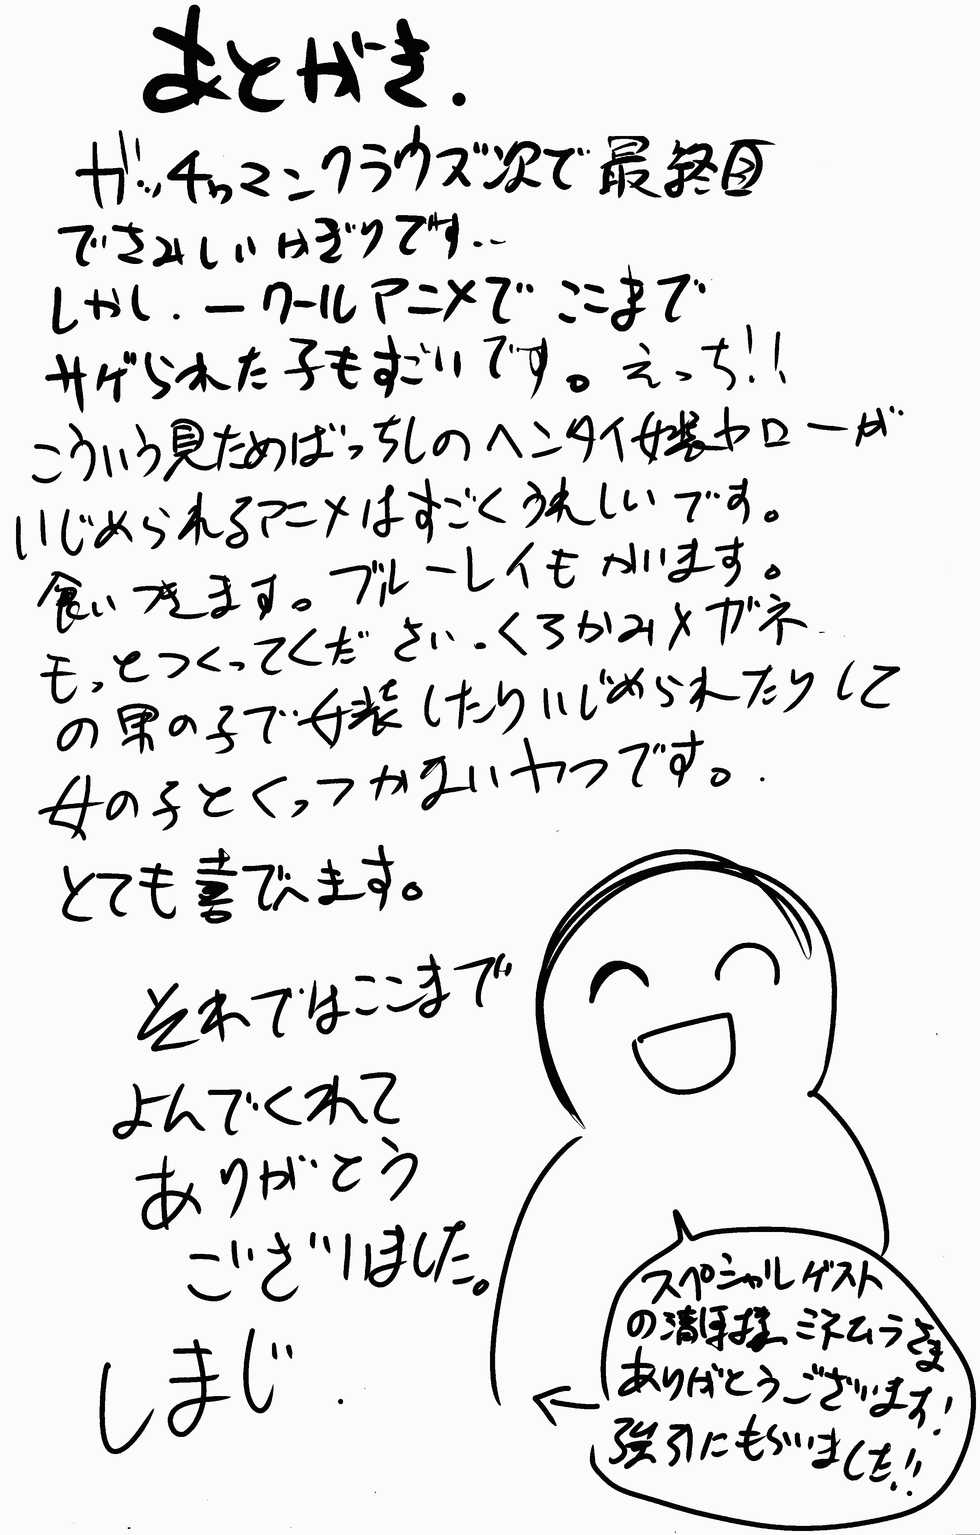 あとがき.
ガッチャマンクラウズ次で最終回
でさみしいかぎりです..
しかし.一クールアニメでここまで
サゲられた子もすごいです。えっち!!
こういう見ためばっちしのヘンタイ女装ヤローが
いじめられるアニメはすごくうれしいです。
食いつきます。ブルーレイもかいます。
もっとつくってください.くろかみメガネ
の男の子で女装したりいじめられたりして
女の子とくっつかないヤツです。.
とても喜でへます。
それではここまで
よんでくれて
ありがとう
ございました。
しまじ.
スペシャルゲスト
の清 様、ミネムラさま
ありがとうございます!
強引にもらいました!!